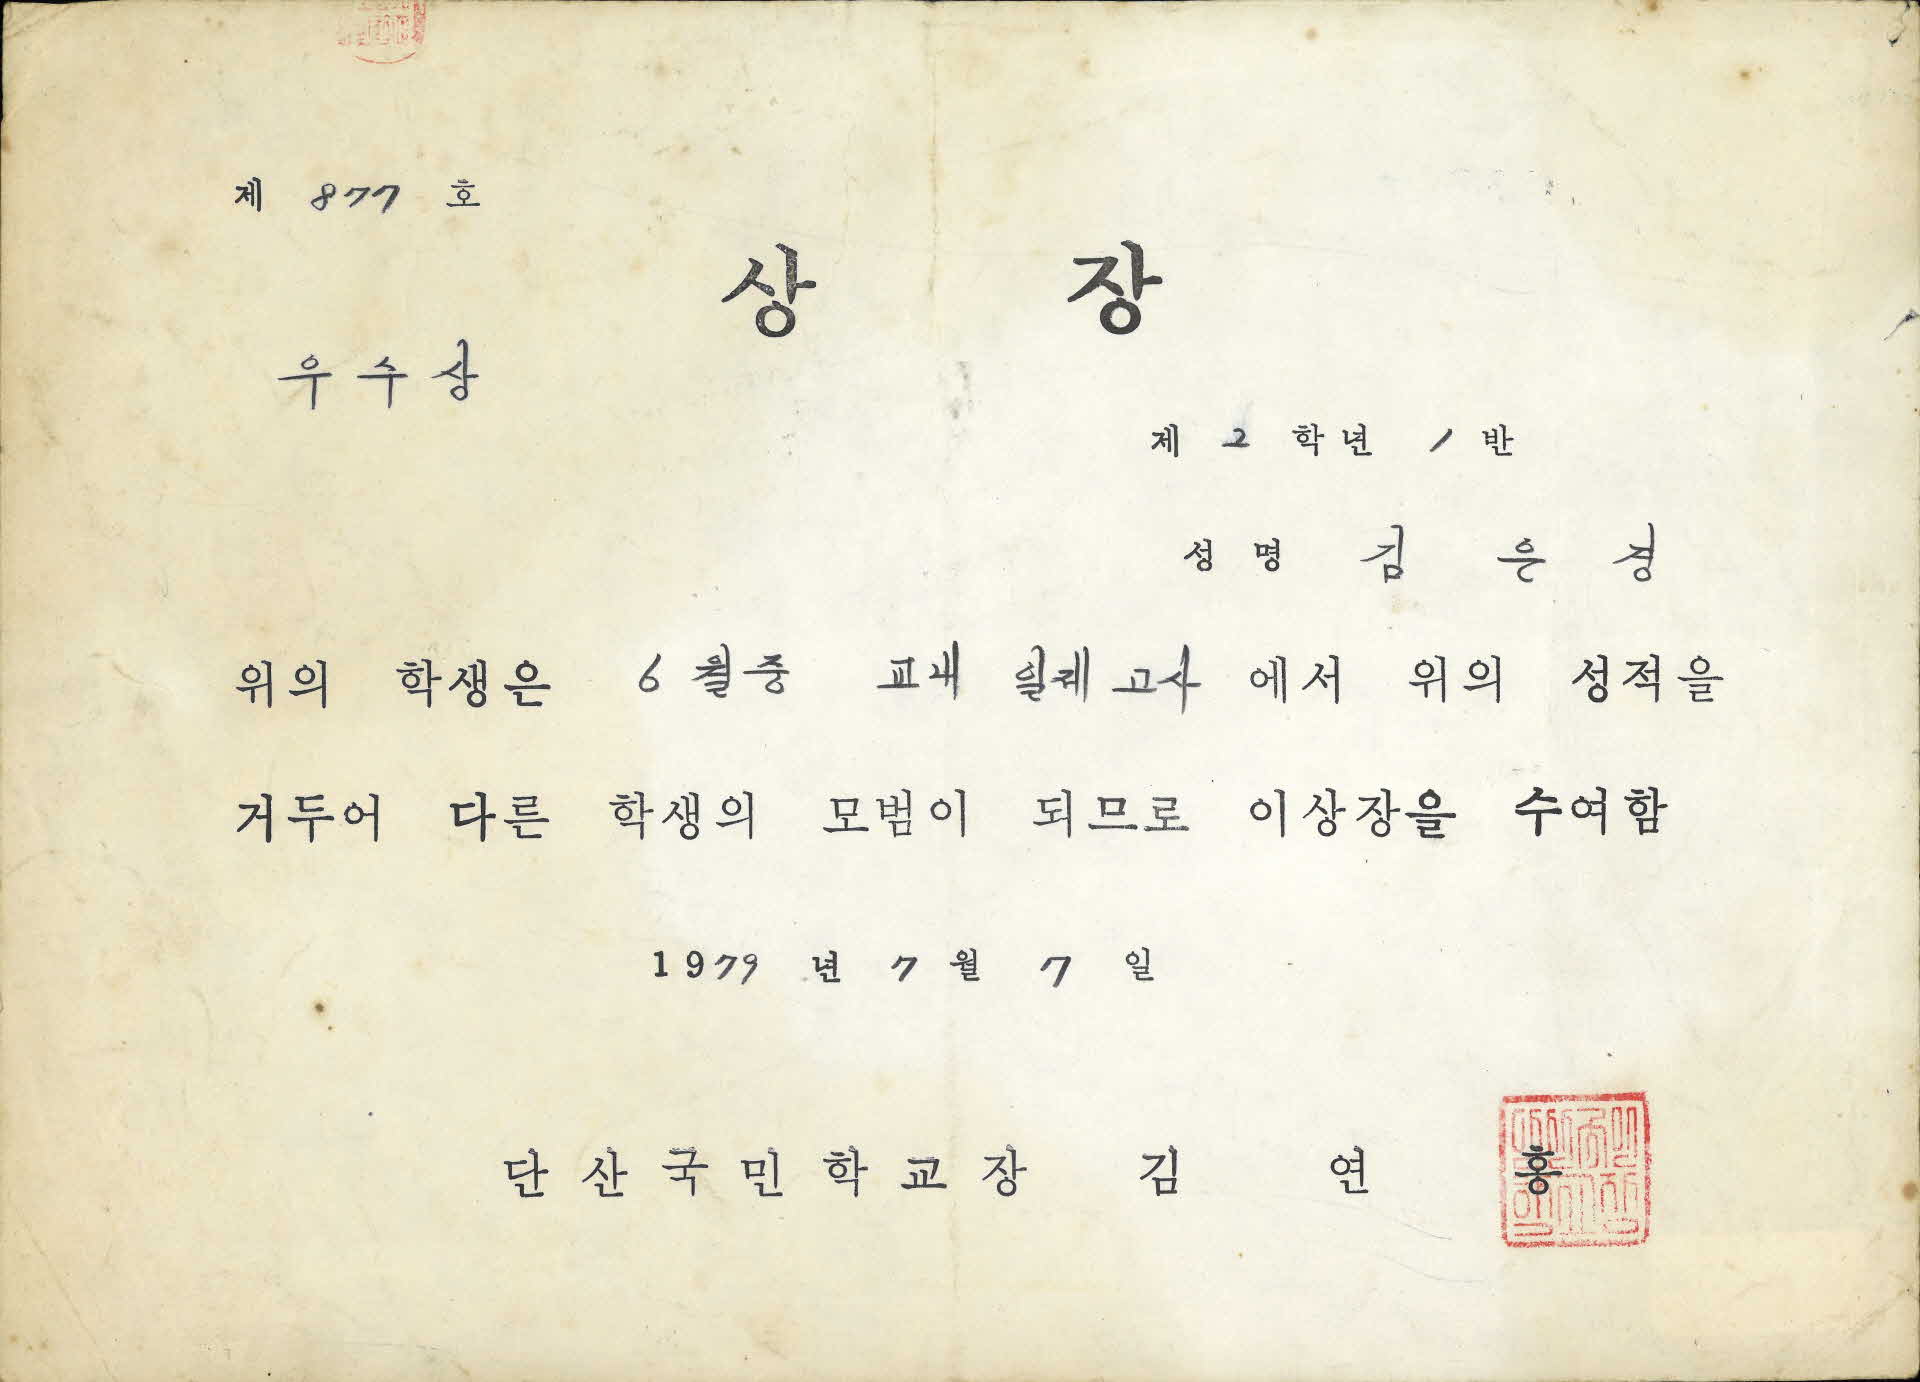 제 877 호
상 장
우수상
제 2 학년 1 반
성명 김은경
위의 학생은 6월중 교내 일제고사에서 위의 성적을
거두어 다른 학생의 모범이 되므로 이상장을 수여함
1979 년 7 월 7 일
단산국민학교장 김 연 홍